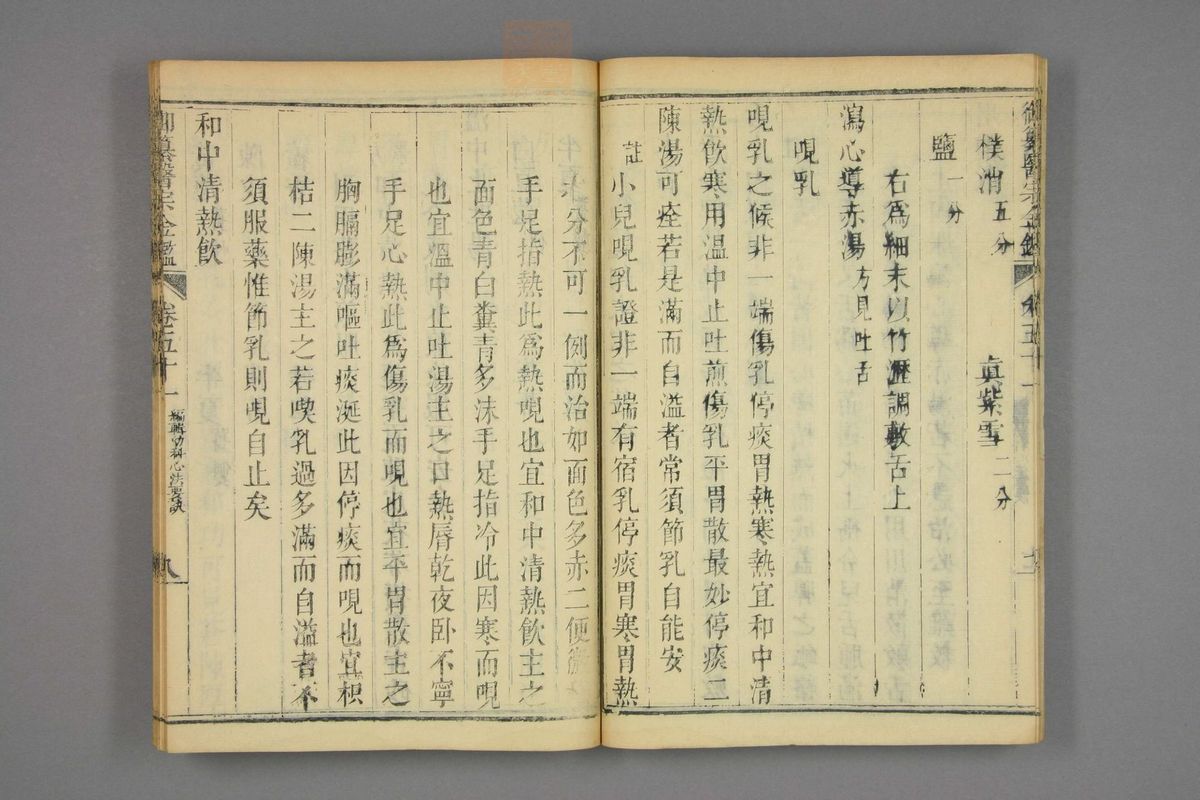 御纂醫宗金鑑 卷五十一
樸硝五分 真紫雪二分
鹽一分
右為細末以竹瀝調敷舌上
瀉心導赤湯方見吐舌
哯乳
哯乳之候非一端傷乳停痰胃熱寒熱宜和中清
熱飲寒用溫中止吐煎傷乳平胃散最妙停痰二
陳湯可痊若是滿而自溢者常須節乳自能安
註小兒哯乳證非一端有宿乳停痰胃寒胃熱
之分不可一例而治如面色多赤二便微
手足指熱此為熱哯也宜和中清熱飲主之
面色青白糞青多沫手足指冷此因寒而哯
也宜溫中止吐湯主之口熱唇乾夜卧不寧
手足心熱此為傷乳而哯也宜平胃散主之
胸膈膨滿嘔吐痰涎此因停痰而哯也宜枳
桔二陳湯主之若喫乳過多滿而自溢者不
須服藥惟節乳則哯自止矣
和中清熱飲
御纂醫宗金鑑 卷五十一 編輯幼科心法要訣 九